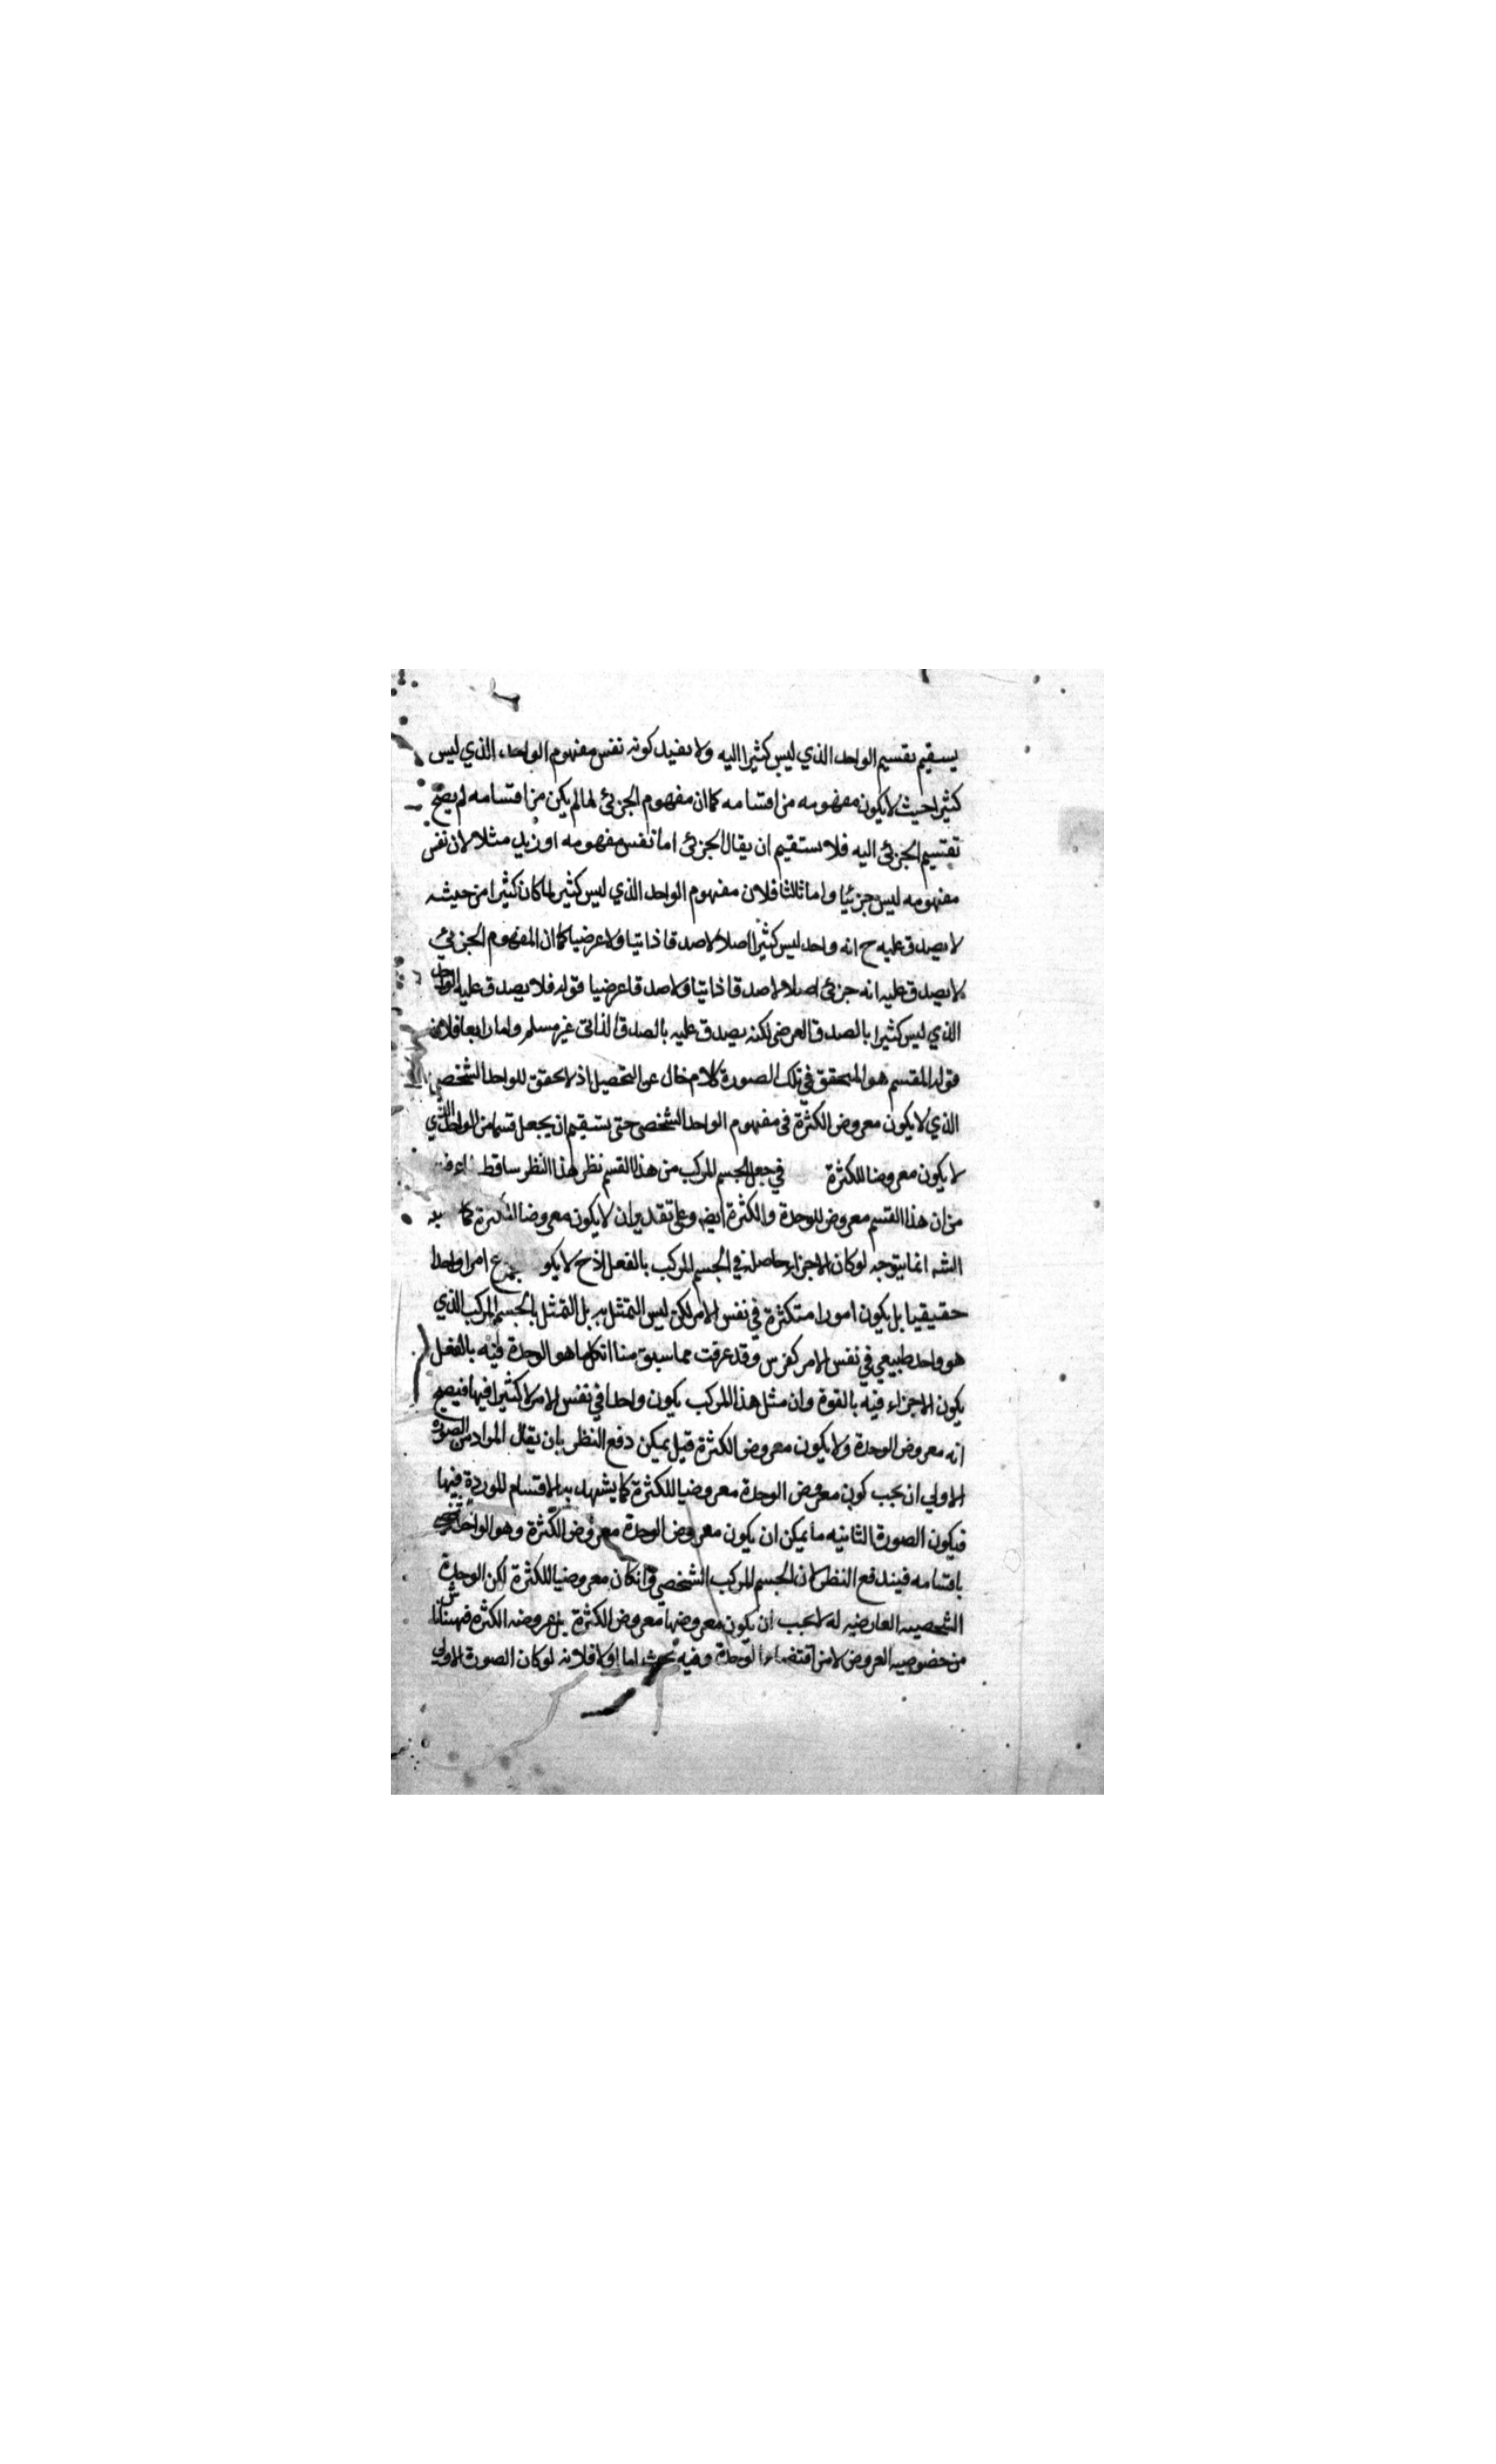 يستقيم تقسيم الواحد الذي ليس كثيرا اليه ولا يفيد كونه نفس مفهوم الواحد الذي ليس
كثيرا حيث لا يكون مفهومه من اقسامه كما ان مفهوم الجزئي لما لم يكن من اقسامه لم يصح
تقسيم الجزئي اليه فلا يستقيم ان يقال الجزئي اما نفس مفهومه او زيد مثلا لان نفس
مفهومه ليس جزئيا واما ثالثا فلان مفهوم الواحد الذي ليس كثيرا لما كان كثيرا من حيث
لا يصدق عليه ح انه واحد ليس كثيرا اصلا لا صدقا ذاتيا ولا عرضيا كما ان المفهوم الجزئي
لا يصدق عليه انه جزئي اصلا لا صدقا ذاتيا ولا صدقا عرضيا قوله فلا يصدق عليه الواحد
الذي ليس كثيرا بالصدق العرضي لكنه يصدق عليه بالصدق الذاتي غير مسلم واما رابعا فلان
قوله المقسم هو المتحقق في تلك الصورة كلام خال عن التحصيل اذ لا تحقق للواحد الشخصي
الذي لا يكون معروض الكثرة في مفهوم الواحد الشخصي حتى يستقيم ان يجعل قسما من الواحد الذي
لا يكون معروضا للكثرة في جعل الجسم المركب من هذا القسم نظر هذا النظر ساقط
من ان هذا القسم معروض للوحدة والكثرة ايضا وعلى تقدير ان لا يكون معروضا للكثرة كما
الشه انما يتوجه لو كان الاجزاء حاصلة في الجسم المركب بالفعل اذ ح لا يكو امرا واحدا
حقيقيا بل يكون امورا متكثرة في نفس الامر لكن ليس التمثل به بل التمثل بالجسم المركب الذي
هو واحد طبيعي في نفس الامر كفرس وقد عرفت مما سبق منا ان كلما هو الوحدة فيه بالفعل
يكون الاجزاء فيه بالقوة وان مثل هذا المركب يكون واحدا في نفس الامر لا كثيرا فيها فيصح
انه معروض الوحدة ولا يكون معروض الكثرة قيل يمكن دفع النظر بان يقال المراد من الصورة
الاولي ان يجب كون معروض الوحدة معروضا للكثرة كما يشهد به الاقسام الموردة فيها
فيكون الصورة الثانيه ما يمكن ان يكون معروض الوحدة معروض الكثرة وهو الواحد الشخصي
باقسامه فيندفع النظر لان الجسم المركب الشخصي وان كان معروضا للكثرة لكن الوحدة
الشخصيه العارضه له لا يجب ان يكون معروضها معروض الكثرة بل عروضه الكثرة
من خصوصيه العروض لا من اقتضاء الوحدة وفيه بحث اما اولا فلانه لو كان الصورة الاولي